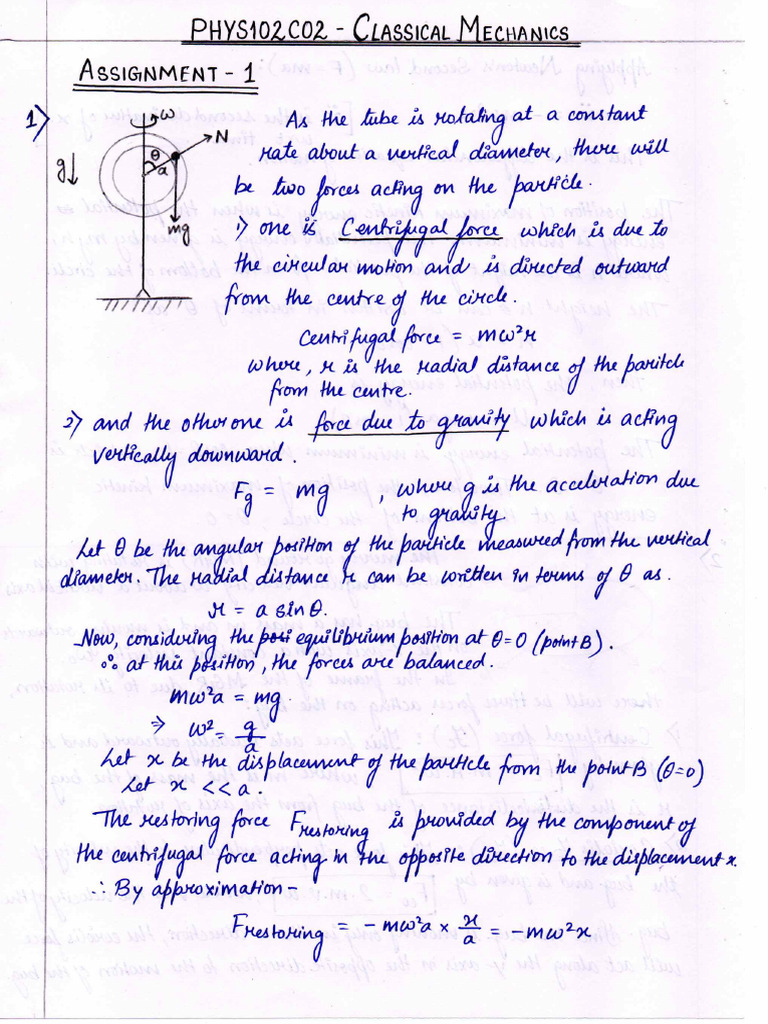 PHYS102C02 - CLASSICAL MECHANICS
ASSIGNMENT - 1
1)
ω
N
θ
a
g↓
mg
As the tube is rotating at a constant
rate about a vertical diameter, there will
be two forces acting on the particle.
1) one is Centrifugal force which is due to
the circular motion and is directed outward
from the centre of the circle.
Centrifugal force = mω²r
where, r is the radial distance of the paritcle
from the centre.
2) and the other one is force due to gravity which is acting
vertically downward.
Fg = mg , where g is the acceleration due
to gravity.
Let θ be the angular position of the particle measured from the vertical
diameter. The radial distance r can be written in terms of θ as.
r = a sinθ.
Now, considering the posi equilibrium position at θ=0 (point B).
∴ at this position, the forces are balanced.
mω²a = mg.
⇒ ω² = g/a
Let x be the displacement of the particle from the point B (θ=0)
Let x << a.
The restoring force Frestoring is provided by the component of
the centrifugal force acting in the opposite direction to the displacement x.
∴ By approximation -
Frestoring = - mω²a × x/a = - mω²x